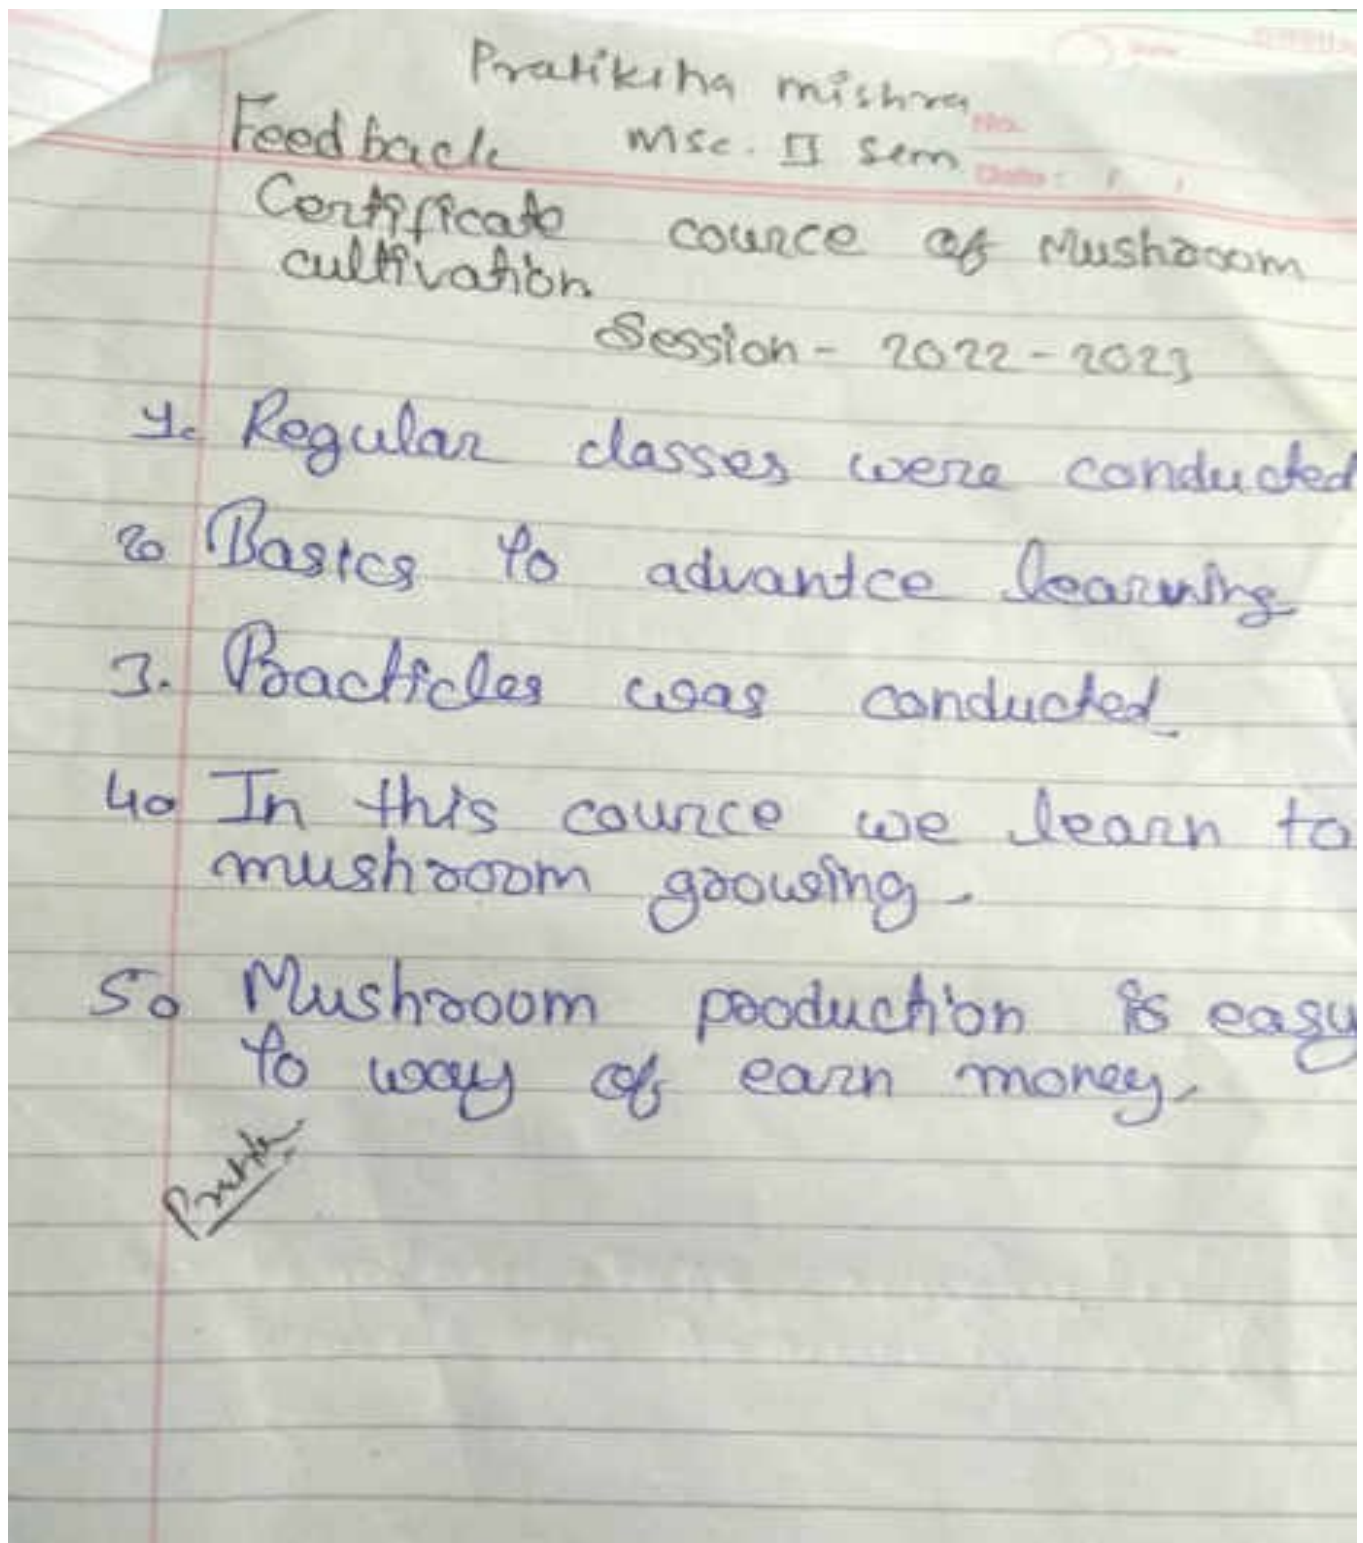 Pratikiha mishra
Feedback MSc. II Sem
No.
Date: / /
Certificate cource of Mushroom
cultivation
Session - 2022-2023
1. Regular classes were conducted
2. Basics to advantce learning
3. Practicles was conducted
4. In this cource we learn to
mushroom growing.
5. Mushroom production is easy
to way of earn money.